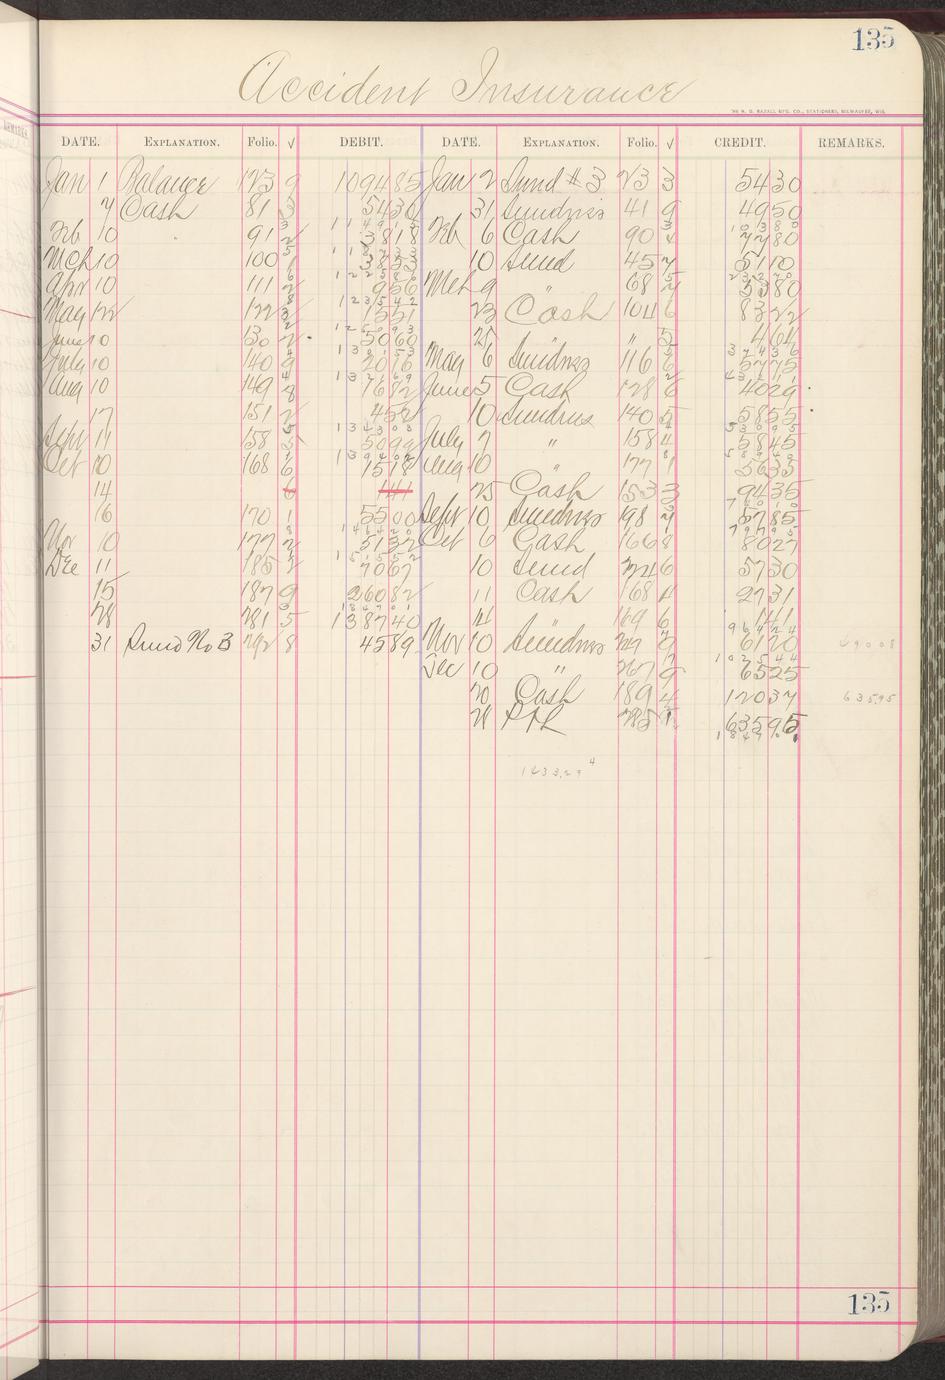 135
Accident Insurance
THE H. G. RAZALL MFG. CO., STATIONERS, MILWAUKEE, WIS.
DATE. EXPLANATION. Folio. √ DEBIT. DATE. EXPLANATION. Folio. √ CREDIT. REMARKS.
Jan 1 Balance 123 9 1094 85 Jan 2 Sund #3 23 3 54 30
7 Cash 81 3 54 30 31 Sundries 41 9 49 50
Feb 10 91 2 38 18 Feb 6 Cash 90 77 80
Mch 10 100 1 38 33 10 Sund 45 7 51 10
Apr 10 111 2 9 56 Mch 9 " 68 53 80
May 12 122 15 51 23 Cash 104 6 83 22
June 10 130 2 50 60 25 " 5 4 64
July 10 140 9 20 16 May 6 Sundries 116 57 75
Aug 10 149 8 16 82 June 5 Cash 128 6 40 29
17 151 2 4 52 10 Sundries 140 5 58 55
Sept 11 158 5 50 99 July 7 " 158 4 58 45
Oct 10 168 6 15 18 Aug 10 " 177 1 56 35
14 6 1 41 25 Cash 153 3 94 35
16 170 1 55 00 Sept 10 Sundries 198 7 57 85
Nov 10 177 2 51 32 Oct 6 Cash 166 8 80 27
Dec 11 185 2 70 67 10 Sund 224 6 57 30
15 187 9 260 82 11 Cash 168 4 27 31
28 281 5 1387 40 14 169 6 1 41
31 Sund No B 292 8 45 89 Nov 10 Sundries 247 61 20
Dec 10 " 267 9 65 25
20 Cash 189 4 120 37
28 P&L 285 1 635 95 635.95
1233.29
135